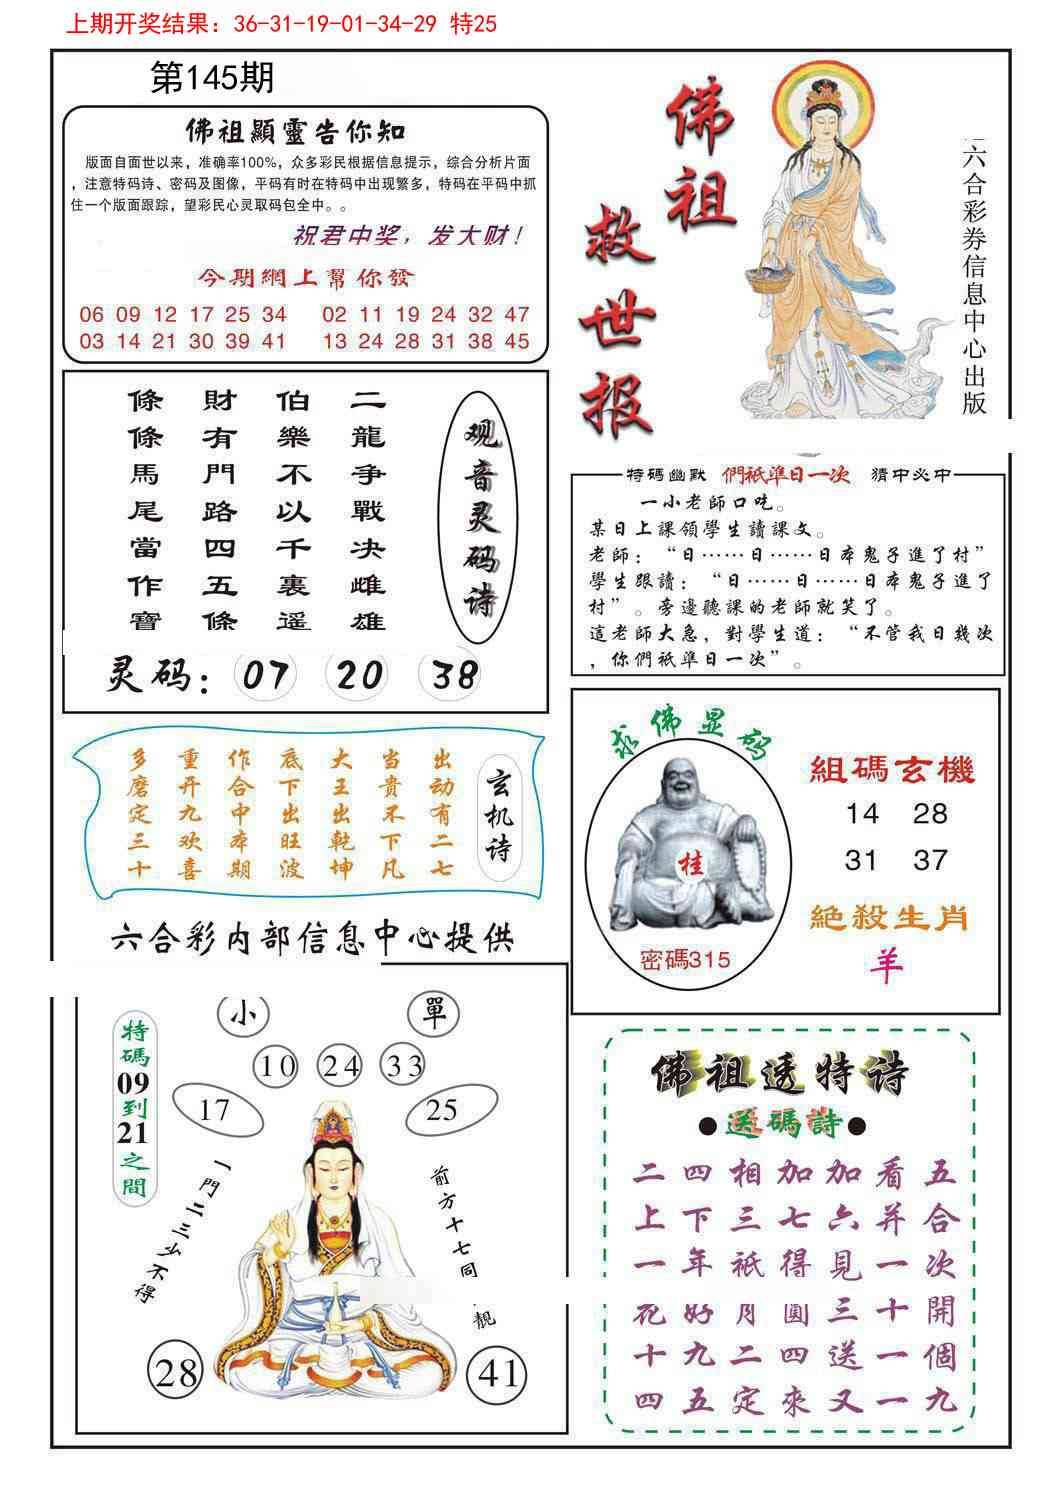 上期开奖结果：36-31-19-01-34-29 特25
第145期
佛祖顯靈告你知
版面自面世以来，准确率100%，众多彩民根据信息提示，综合分析片面
，注意特码诗、密码及图像，平码有时在特码中出现繁多，特码在平码中抓
住一个版面跟踪，望彩民心灵取码包全中。。
祝君中奖，发大财！
今期網上幫你發
06 09 12 17 25 34 02 11 19 24 32 47
03 14 21 30 39 41 13 24 28 31 38 45
佛祖
救世报
六合彩券信息中心出版
二龍争戰决雌雄
伯樂不以千裏遥
財有門路四五條
條條馬尾當作寶
观音灵码诗
灵码：07 20 38
特碼幽默 們衹準日一次 猜中必中
一小老師口吃。
某日上課領學生讀課文。
老師：“日……日……日本鬼子進了村”
學生跟讀：“日……日……日本鬼子進了
村”。旁邊聽課的老師就笑了。
這老師大急，對學生道：“不管我日幾次
，你們衹準日一次”。
玄机诗
出动有二七
当貴不下凡
大王出乾坤
底下出旺波
作合中本期
重开九欢喜
多磨定三十
六合彩内部信息中心提供
求佛显码
桂
密碼315
組碼玄機
14 28
31 37
絶殺生肖
羊
特碼09到21之間
小 單
10 24 33
17 25
一門二三少不得
前方十七同 靚
28 41
佛祖透特诗
●送碼詩●
二四相加加看五
上下三七六并合
一年衹得見一次
花好月圓三十開
十九二四送一個
四五定來又一九